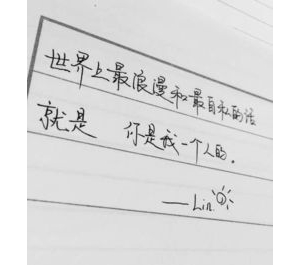 世界上最浪漫和最自私的话
就是 你是我一个人的.
——Lin.